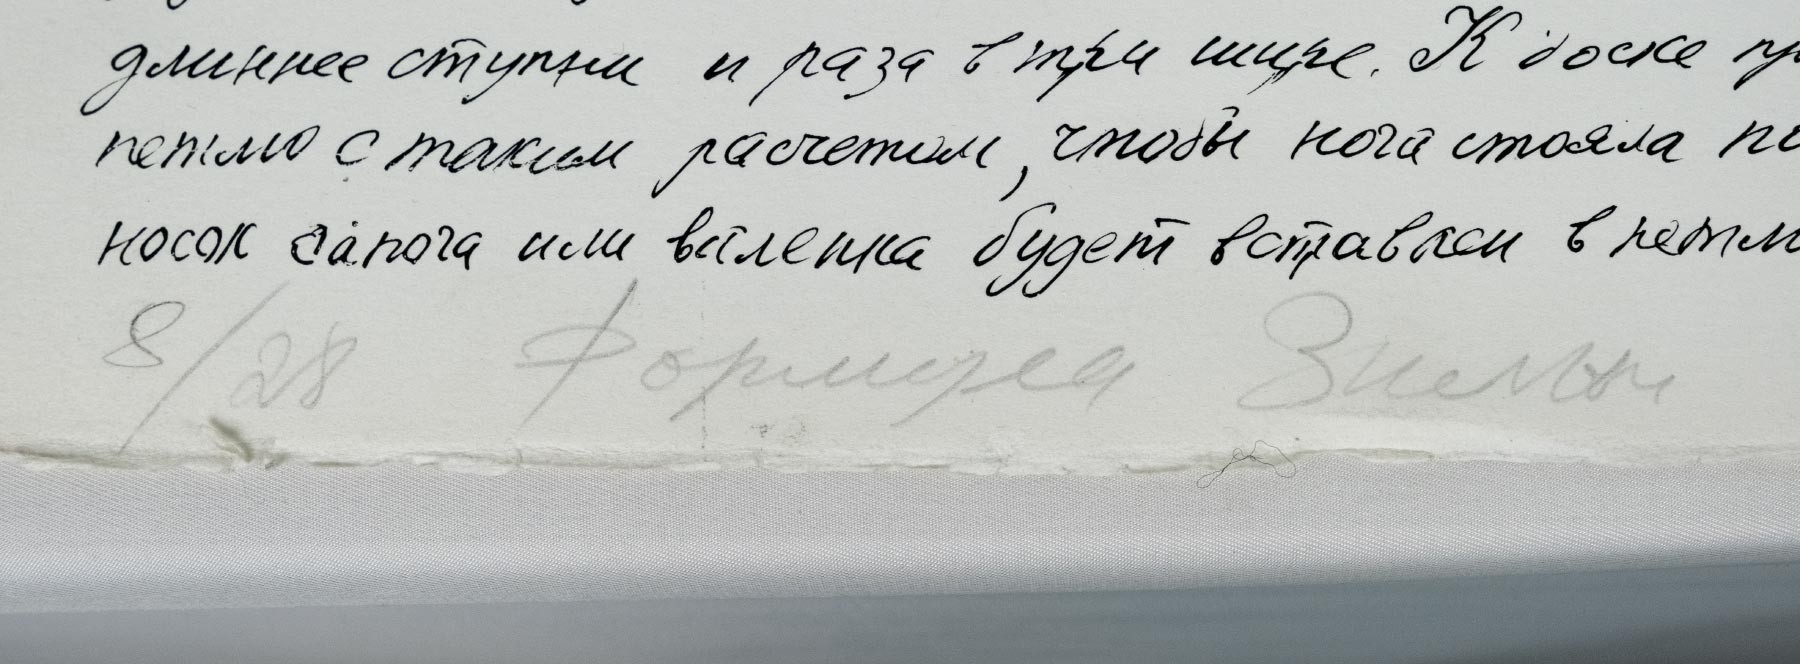 длиннее ступни и раза в три шире. К доске пр
петлю с таким расчетом, чтобы нога стояла по
носок сапога или валенка будет вставлен в петлю
8/28 Формула Зимы